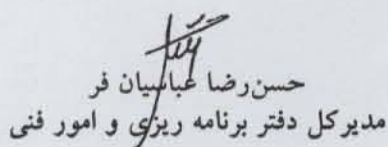 حسن‌رضا عباسیان فر
مدیرکل دفتر برنامه ریزی و امور فنی